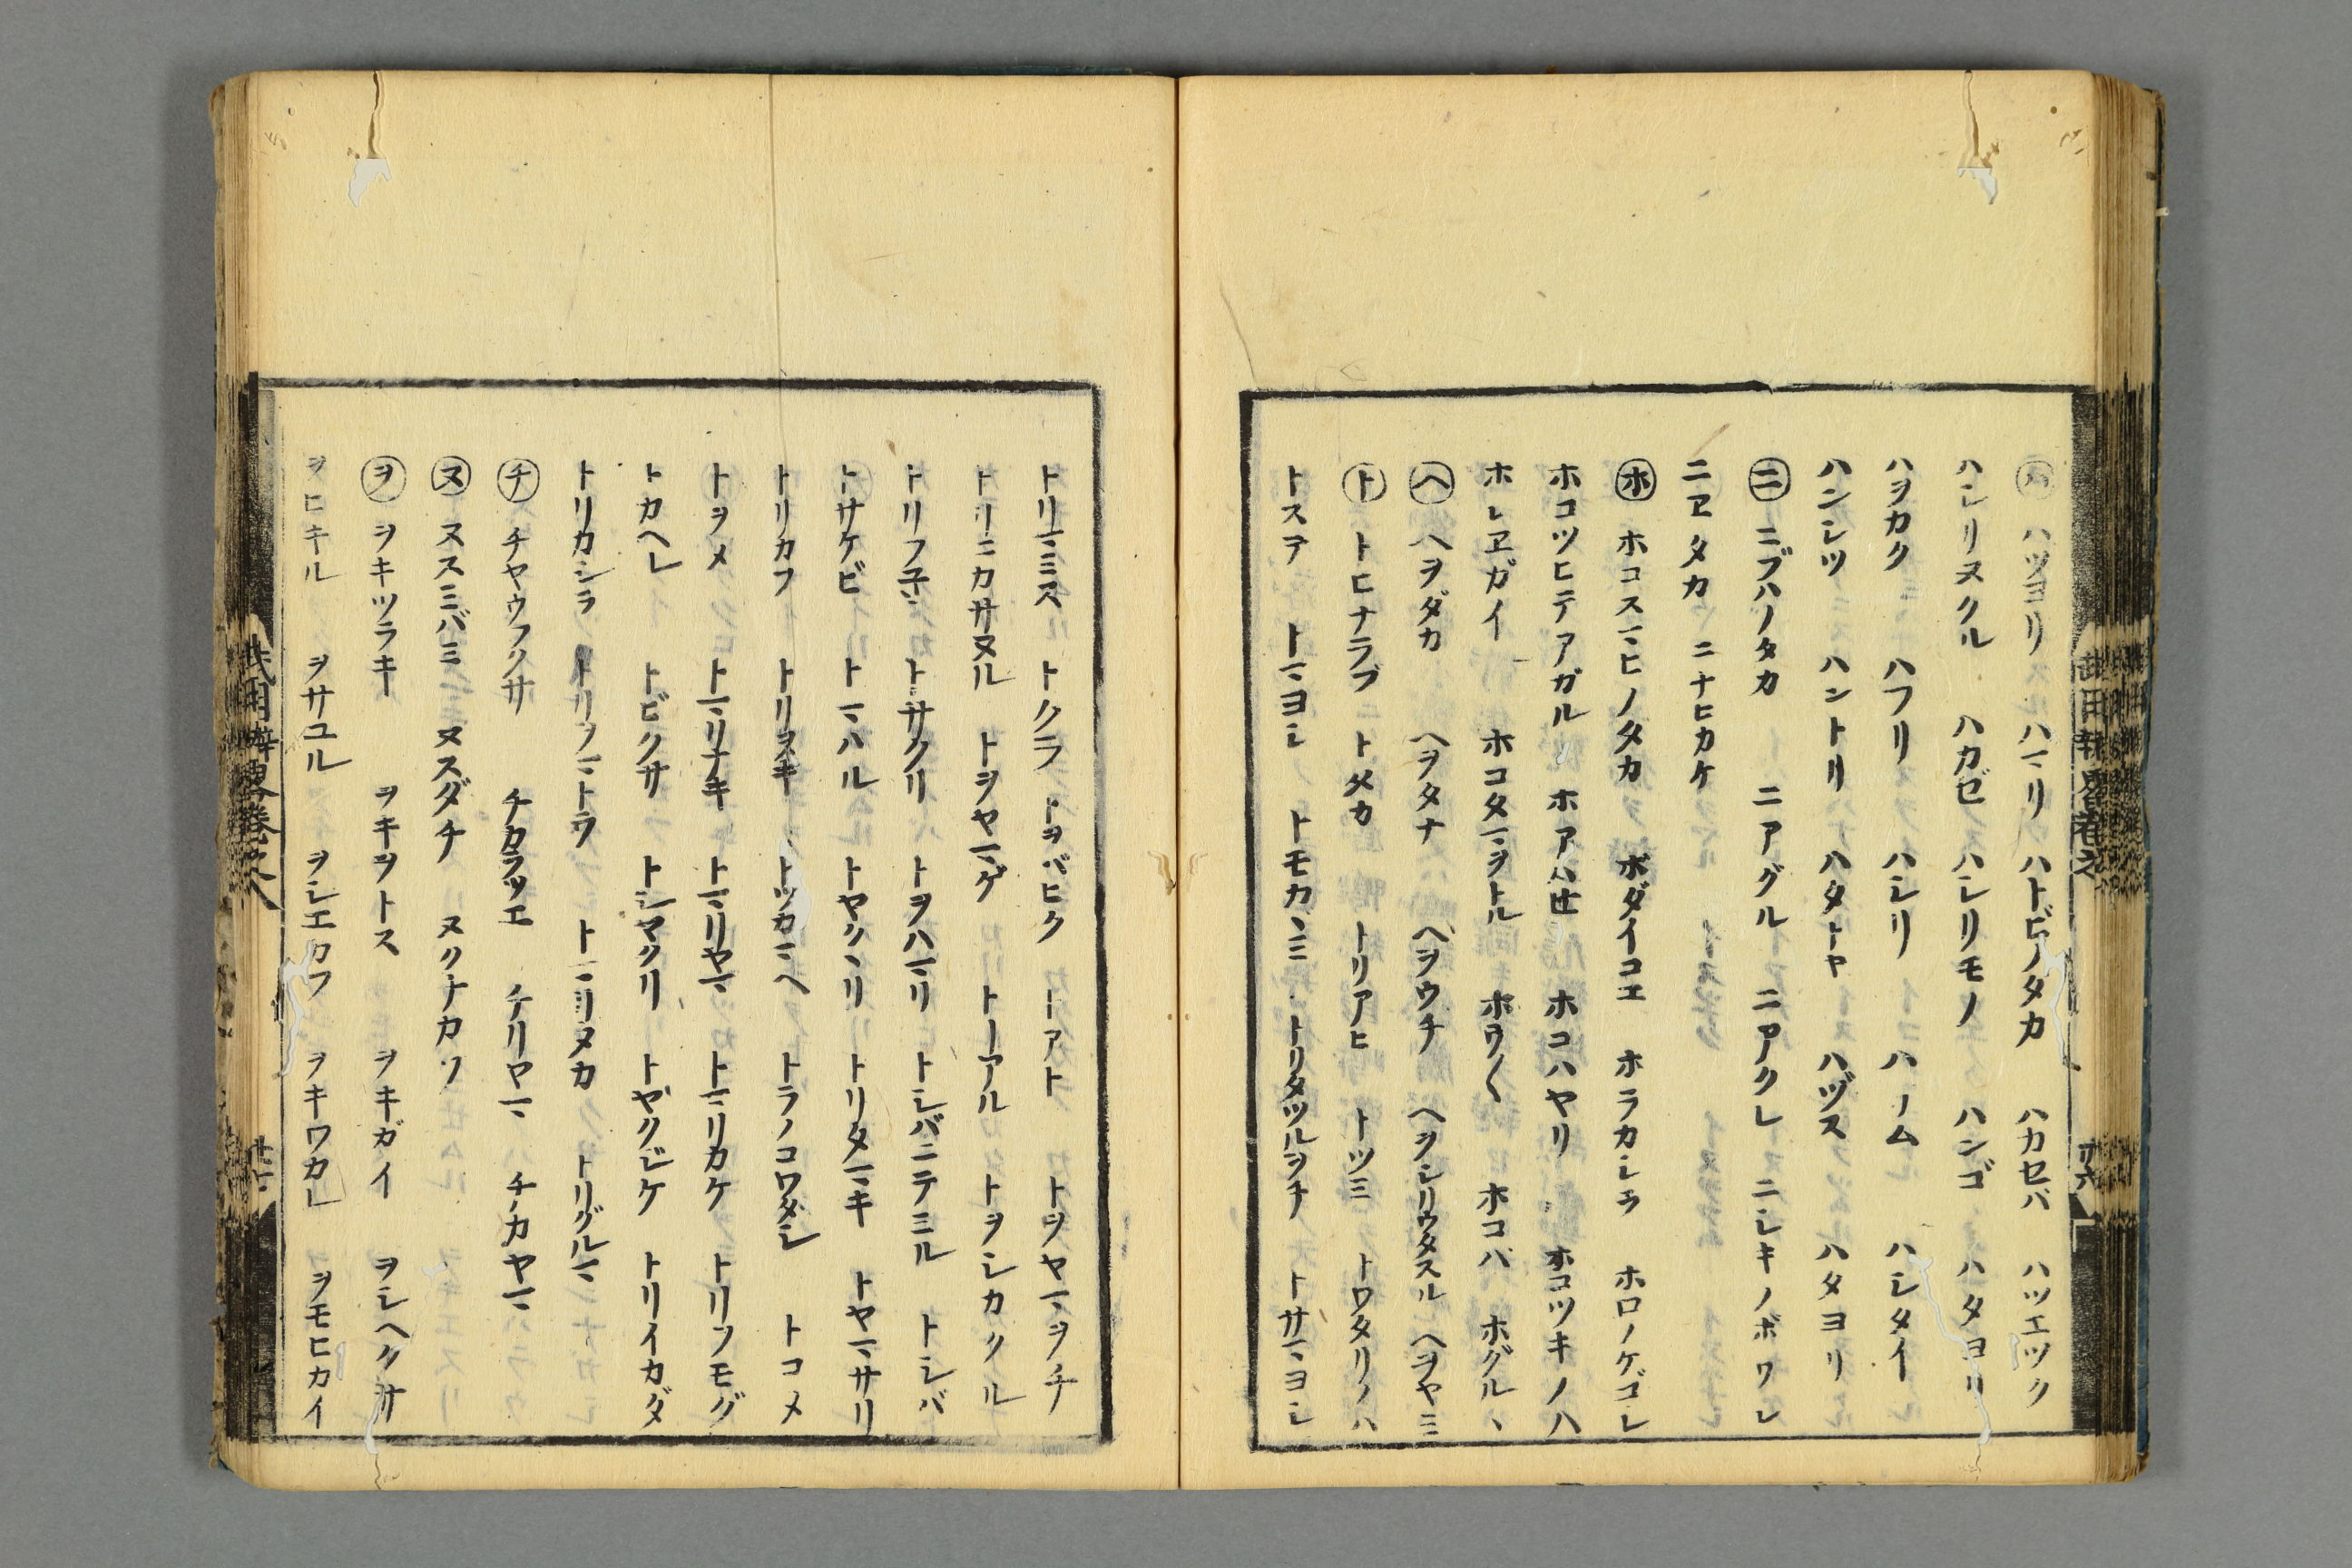 ハツヨリ ハマリ ハトビノタカ ハカセバ ハツエツク
ハシリヌクル ハカゼ ハシリモノ ハンゴ ハタヨリ
ハヲカク ハフリ ハシリ ハノム ハシタイ
ハンシツ ハントリ ハタトヤ ハヅス ハタヨリ
㊁ ニブハノタカ ニアグル ニアクレ ニシキノボウレ
ニヱタカ ニナヒカケ
ホ ホコスマヒノタカ ボダイコエ ホラカシラ ホロノケゴレ
ホコツヒテアガル ホアハセ ホコハヤリ ホコツキノハ
ホレヱガイ ホコタマヲトル ボウ〱 ホコバ ホグルヽ
ヘ ヘヲダカ ヘヲタナ ヘヲウチ ヘヲシリウタスル ヘヲヤミ
ト トヒナラブ トタカ トリアヒ トツミ トワタリノハ
トステ トマヨシ トモカヽミ トリタツルヲチ トサマヨシ
トリマミス トクラ トヲバヒク トアト トヲヤマヲチ
トリニカサヌル トヲヤマゲ トーアル トヲシカクル
トリフ子 トサクリ トヲハマリ トシバニテミル トシバ
トサケビ トマハル トヤクヽリ トリタマキ トヤマサリ
トリカフ トリスキ トツカマヘ トラノコワタシ トコメ
トヲメ トマリギキ トマリヤマ トマリカケ トリソモグ
トカヘレ トビクサ トシヤクリ トヤクビケ トリイカダ
トリカシラ トリフマトウ トマリヌカ トリグルマ
チ チヤウフクサ チカラツエ チリヤマ チカヤマ
ヌ ヌスミバミ ヌスダチ ヌクナカワ
ヲ ヲキツラキ ヲキヲトス ヲキガイ ヲシヘクサ
ヲヒキル ヲサユル ヲシエカフ ヲキワカレ ヲモヒカイ
武用弁畧巻之八